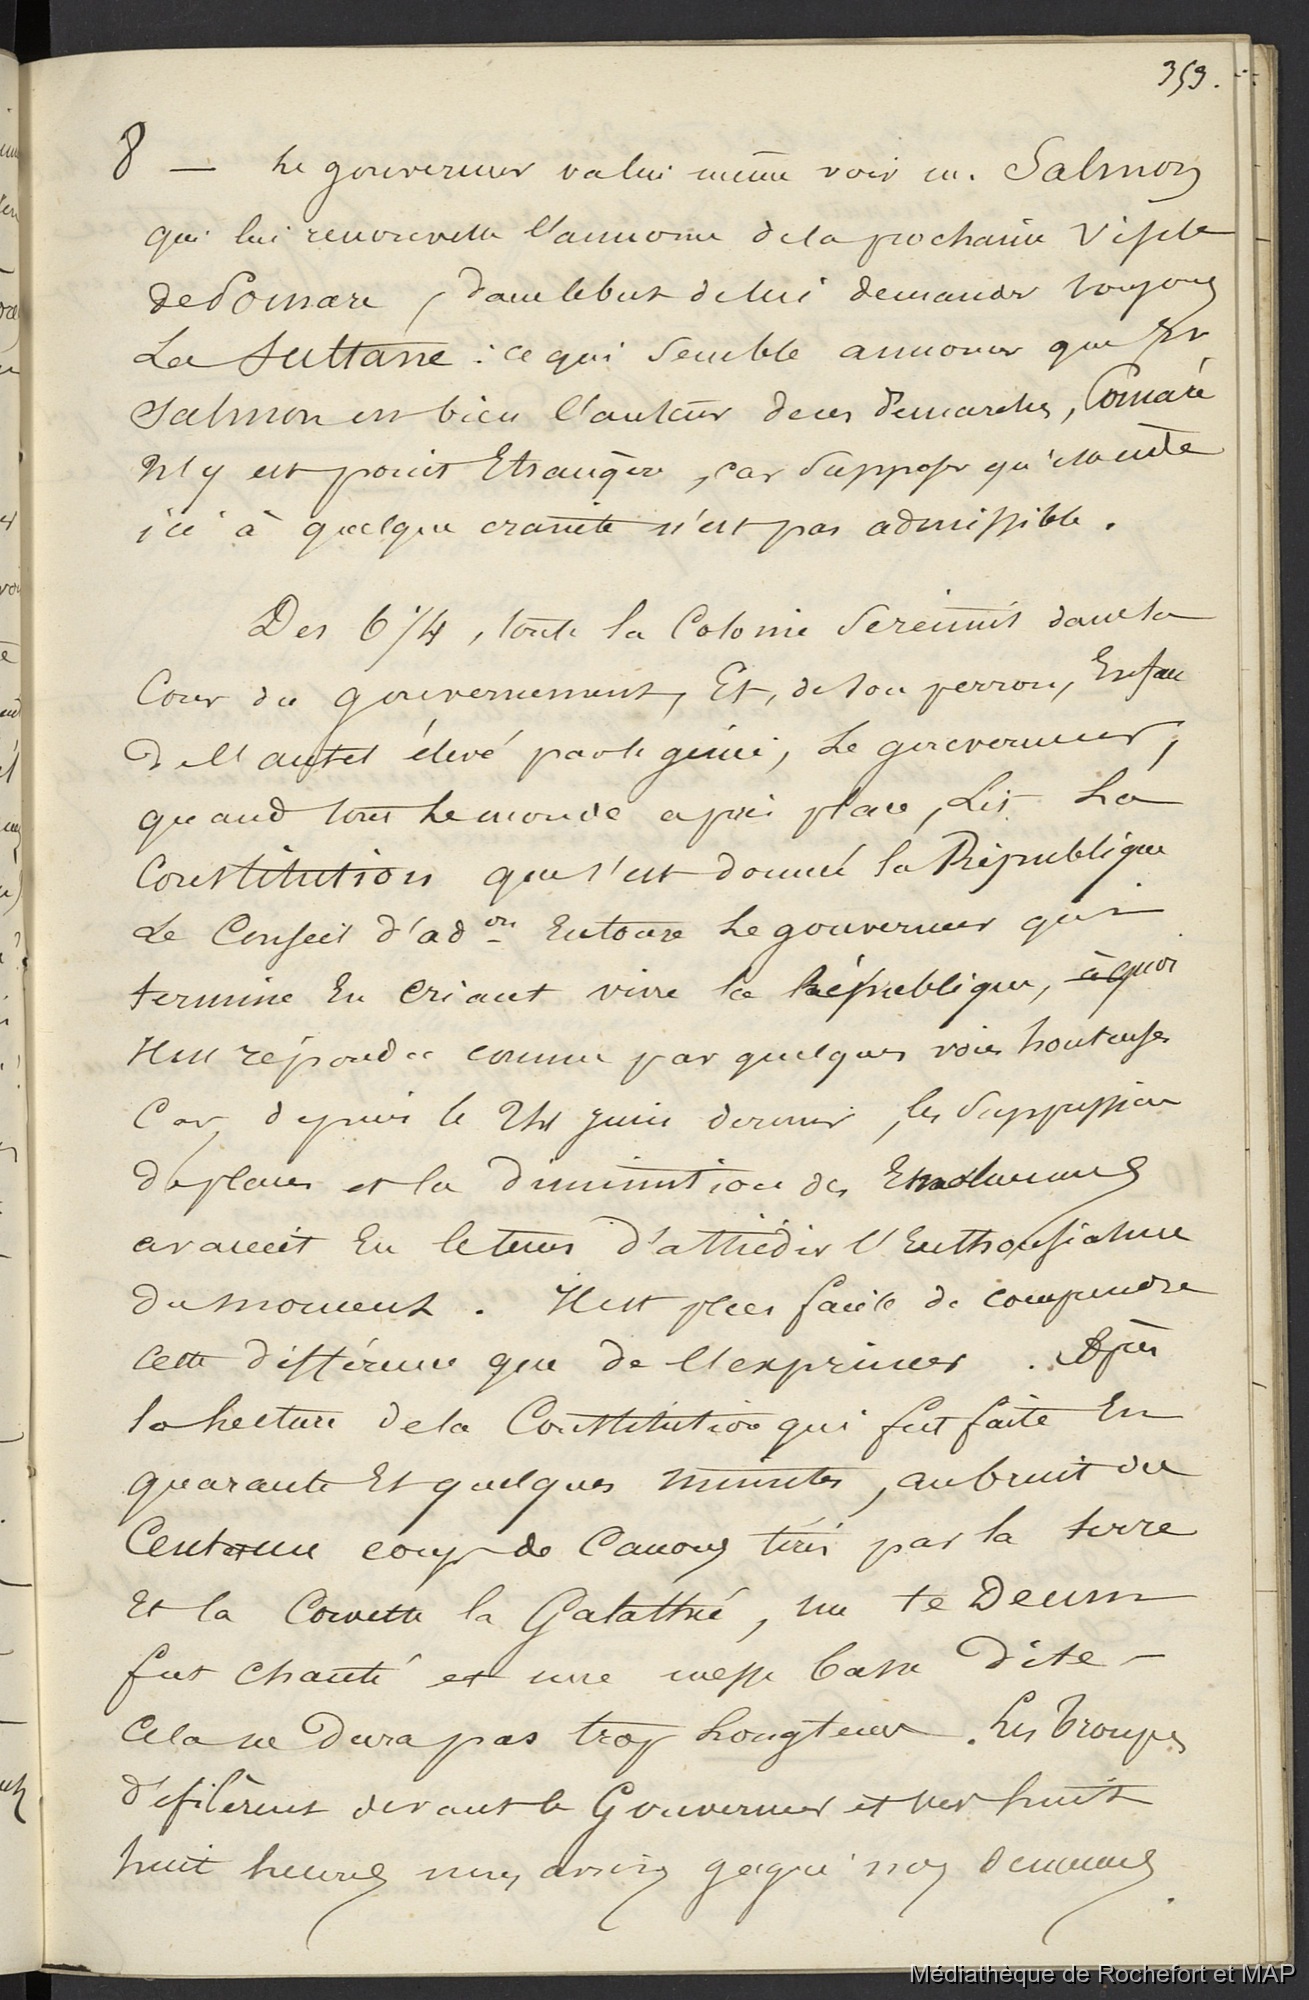 359.
8 — Le gouverneur va lui même voir m. Salmon
qui lui renouvelle l'annonce de la prochaine visite
de Pomare, dans le but de lui demander toujours
La Sultane : ce qui semble annoncer que Mr
Salmon est bien l'auteur de ces demarches, Pomaré
N'y est point Etrangère, car supposer qu'
ici à quelque crainte n'est pas admissible.
Des 6 1/4, toute la Colonie se réunit dans la
Cour du gouvernement, Et, de son perron, En face
De l'autel élevé par le génie, Le gouverneur,
quand tout le monde a pris place, Lit La
Constitution que s'est donnée la République
Le Conseil d'ad.on Entoure Le gouverneur qui
termine En criant vive la République, à quoi
Il est répondu comme par quelques voix honteuses
Car, depuis le 24 juin dernier, les suppressions
de places et la diminution des Emoluments
avaient Eu le tems d'attiédir l'Enthousiasme
du moment. Il est plus facile de comprendre
cette différence que de l'exprimer. Après
la Lecture de la Constitution qui fut faite En
quarante Et quelques minutes, au bruit de
Cent et un coups de Canons tirés par la terre
Et la Corvette la Galathée, un te Deum
fut chanté et une messe basse Dite –
Cela ne Dura pas trop Longtems. Les Troupes
Défilèrent devant le Gouverneur et vers huit
huit heures nous avions gagné nos demeures.
Médiathèque de Rochefort et MAP